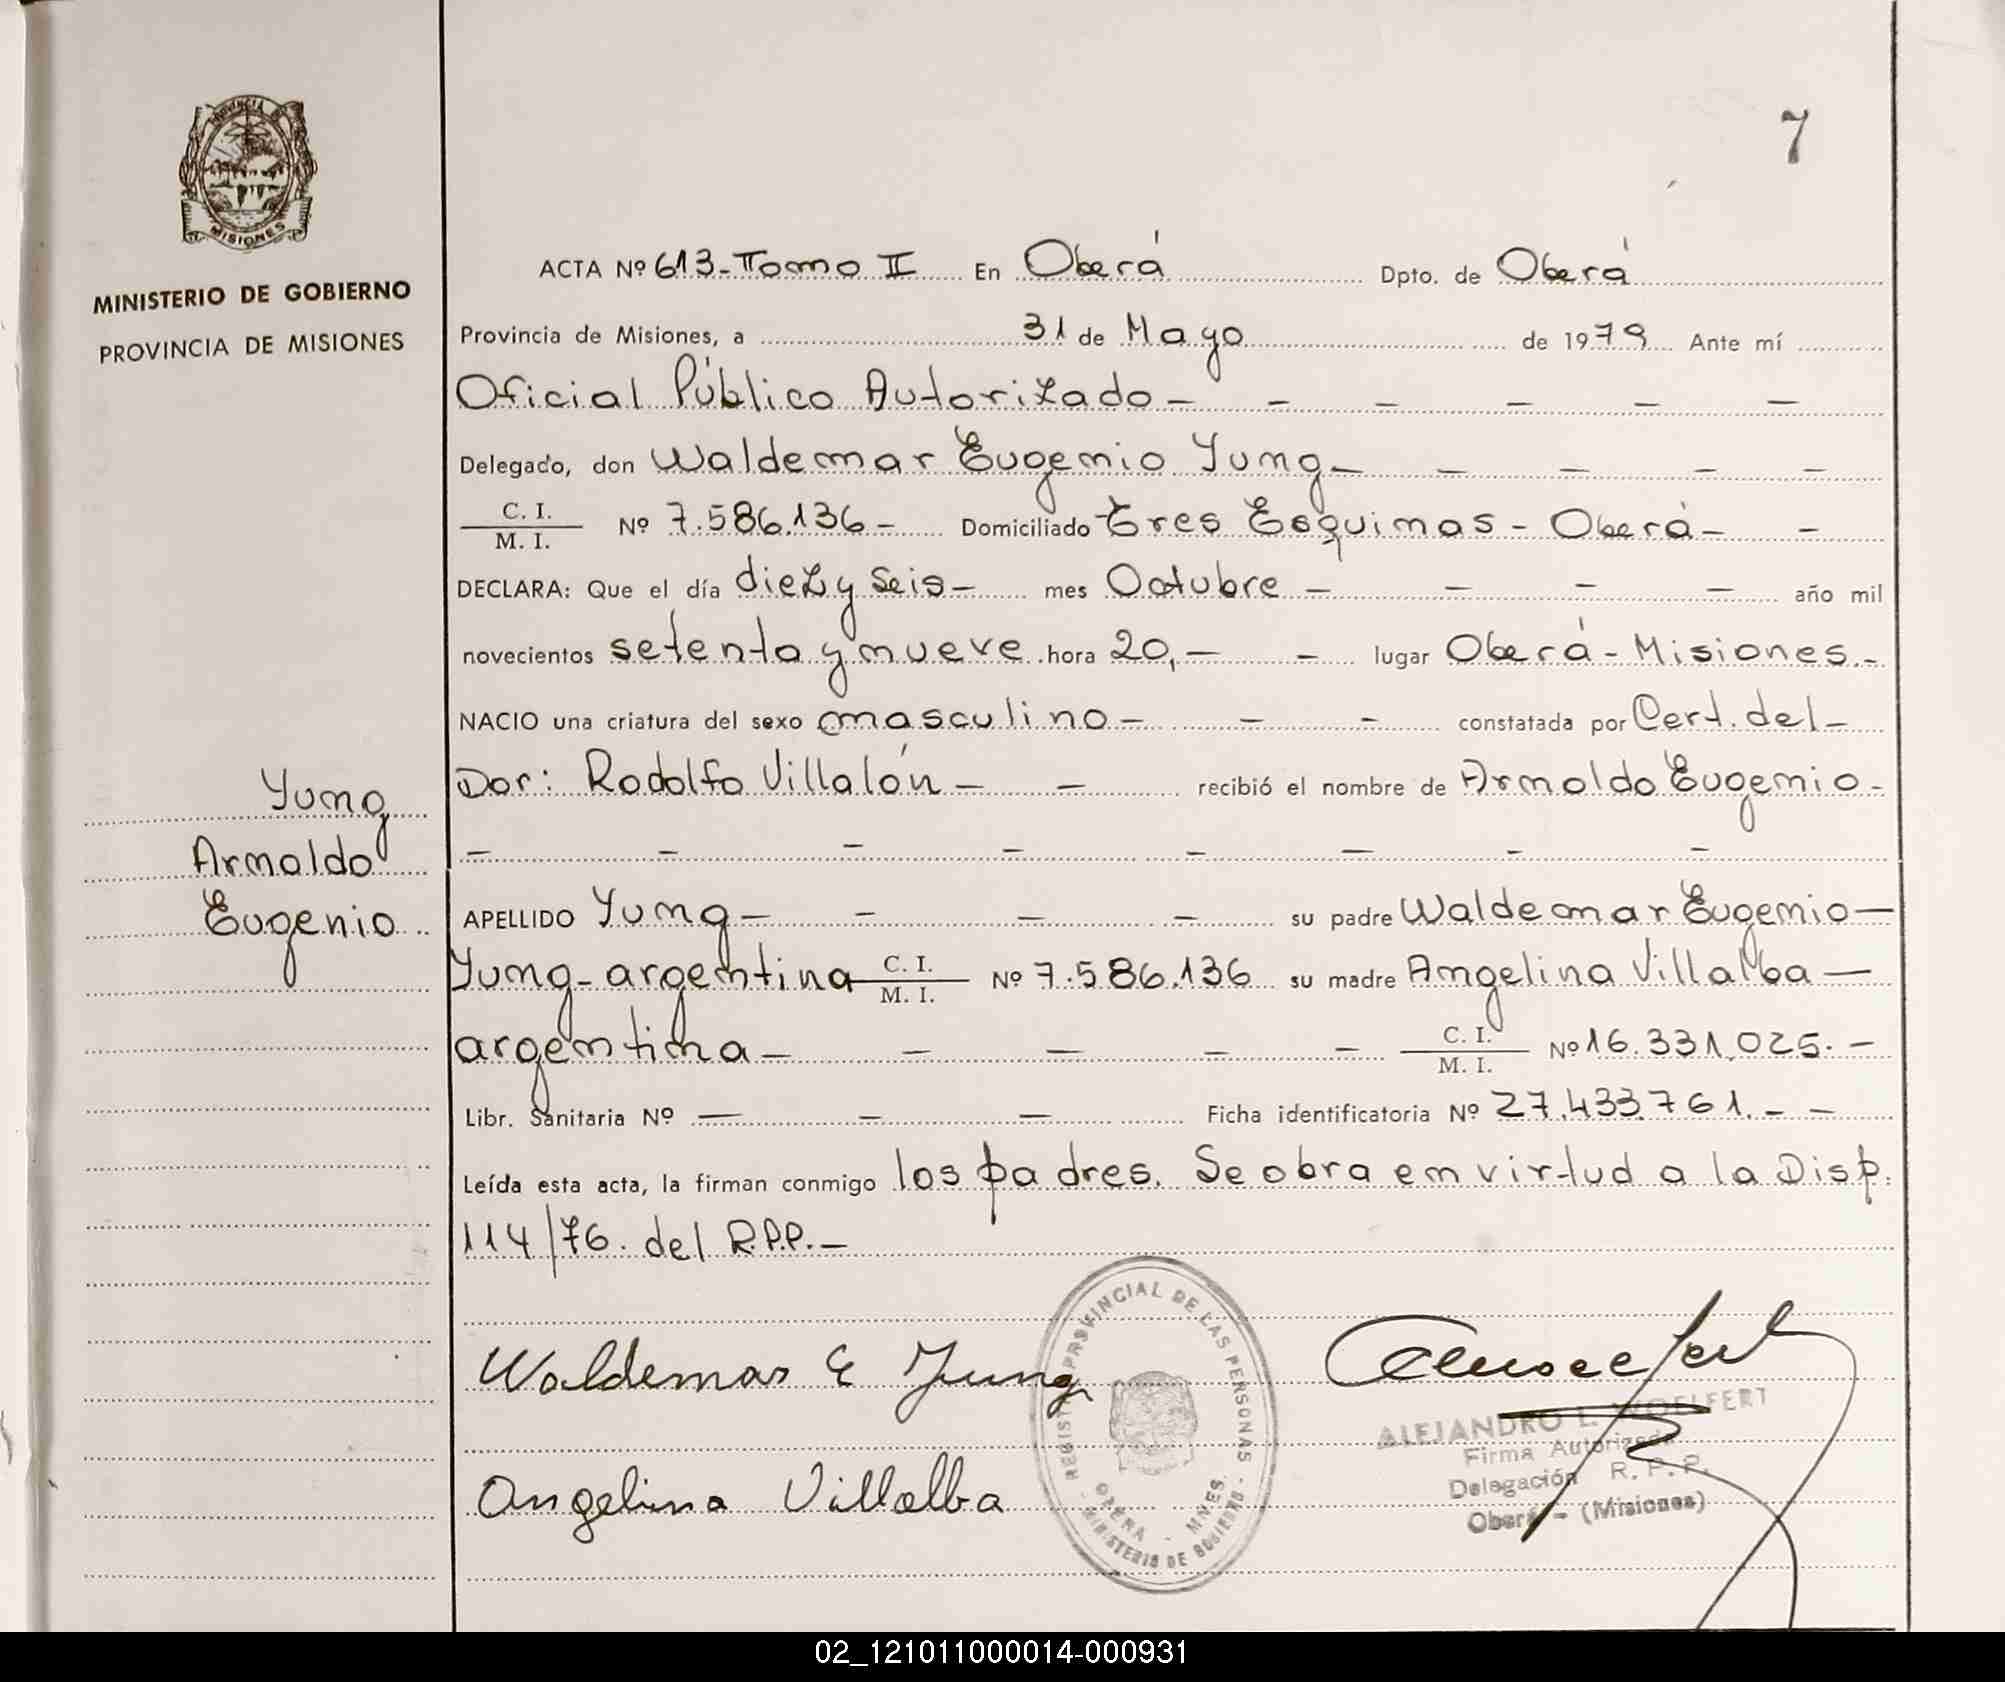 7
PROVINCIA DE
MISIONES
MINISTERIO DE GOBIERNO
PROVINCIA DE MISIONES
ACTA Nº 613-Tomo II En Oberá Dpto. de Oberá
Provincia de Misiones, a 31 de Mayo de 1979 Ante mí
Oficial Público Autorizado - - - - - -
Delegado, don Waldemar Eugenio Yung - - - - -
C. I.
M. I. Nº 7.586.136 - Domiciliado Tres Esquinas - Oberá - -
DECLARA: Que el día diez y seis - mes Octubre - - - - año mil
novecientos setenta y nueve hora 20,- - lugar Oberá - Misiones.-
NACIO una criatura del sexo masculino - - - constatada por Cert. del -
Dor: Rodolfo Villalón - - recibió el nombre de Arnoldo Eugenio -
- - - - - - - -
Yung
Arnoldo
Eugenio
APELLIDO Yung - - - - su padre Waldemar Eugenio -
Yung - argentina C. I. / M. I. Nº 7.586.136 su madre Angelina Villalba -
argentina - - - - - C. I. / M. I. Nº 16.331.025. -
Libr. Sanitaria Nº - - - Ficha identificatoria Nº 27.433.761. - -
Leída esta acta, la firman conmigo los padres. Se obra en virtud a la Disp.
114/76. del R.P.P. -
Waldemar E Yung
Angelina Villalba
REGISTRO PROVINCIAL DE LAS PERSONAS
OBERA - MNES.
MINISTERIO DE GOBIERNO
ALEJANDRO L. WOELFERT
Firma Autorizada
Delegación R. P. P.
Oberá - (Misiones)
02_121011000014-000931